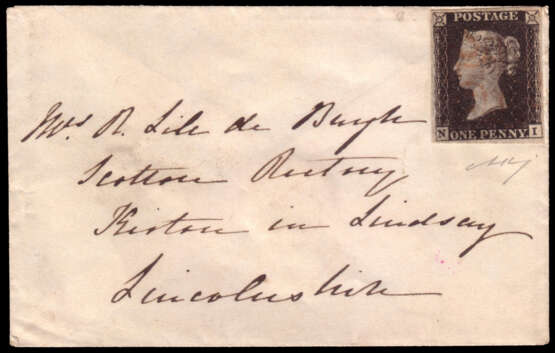 POSTAGE
N ONE PENNY I
Mrs R. Lile de Burgh
Scotton Rectory
Kirton in Lindsay
Lincolnshire